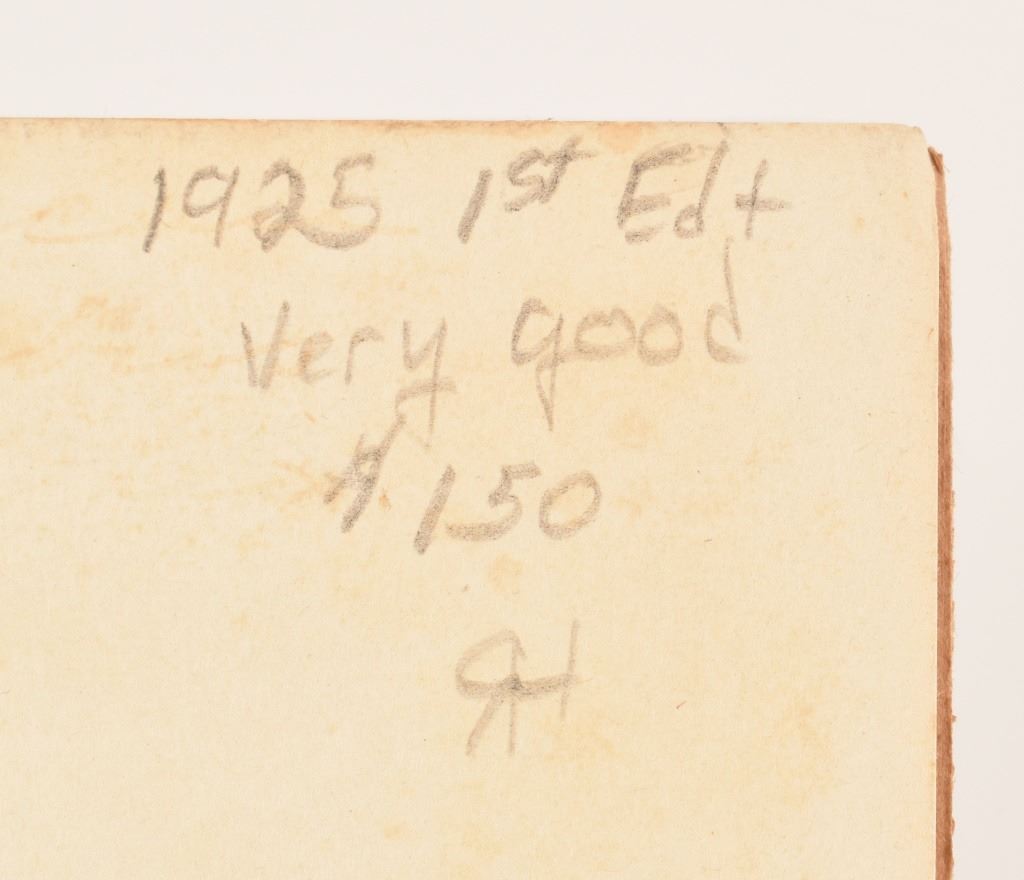 1925 1st Edt
Very good
$150